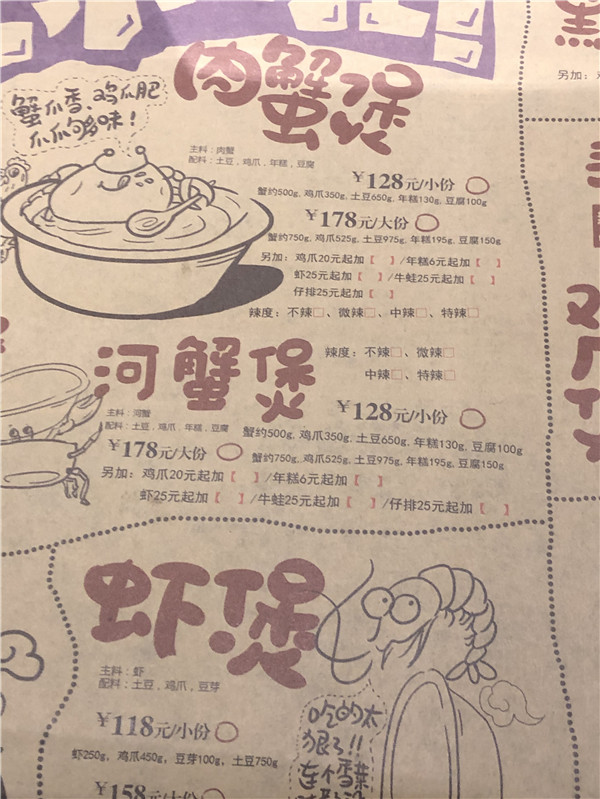 肉蟹煲
蟹爪香、鸡爪肥
爪爪够味！
主料：肉蟹
配料：土豆，鸡爪，年糕，豆腐
¥128元/小份
蟹约500g, 鸡爪350g, 土豆650g, 年糕130g, 豆腐100g
¥178元/大份
蟹约750g, 鸡爪525g, 土豆975g, 年糕195g, 豆腐150g
另加：鸡爪20元起加【 】/年糕6元起加【 】
虾25元起加【 】/牛蛙25元起加【 】
仔排25元起加【 】
辣度：不辣□、微辣□、中辣□、特辣□
河蟹煲
辣度：不辣□、微辣□
中辣□、特辣□
主料：河蟹
配料：土豆，鸡爪，年糕，豆腐
¥128元/小份
蟹约500g, 鸡爪350g, 土豆650g, 年糕130g, 豆腐100g
¥178元/大份
蟹约750g, 鸡爪525g, 土豆975g, 年糕195g, 豆腐150g
另加：鸡爪20元起加【 】/年糕6元起加【 】
虾25元起加【 】/牛蛙25元起加【 】/仔排25元起加【 】
虾煲
主料：虾
配料：土豆，鸡爪，豆芽
¥118元/小份
虾250g, 鸡爪450g, 豆芽100g, 土豆750g
¥158元/大份
吃的太
狠了!!
连个香菜
另加：